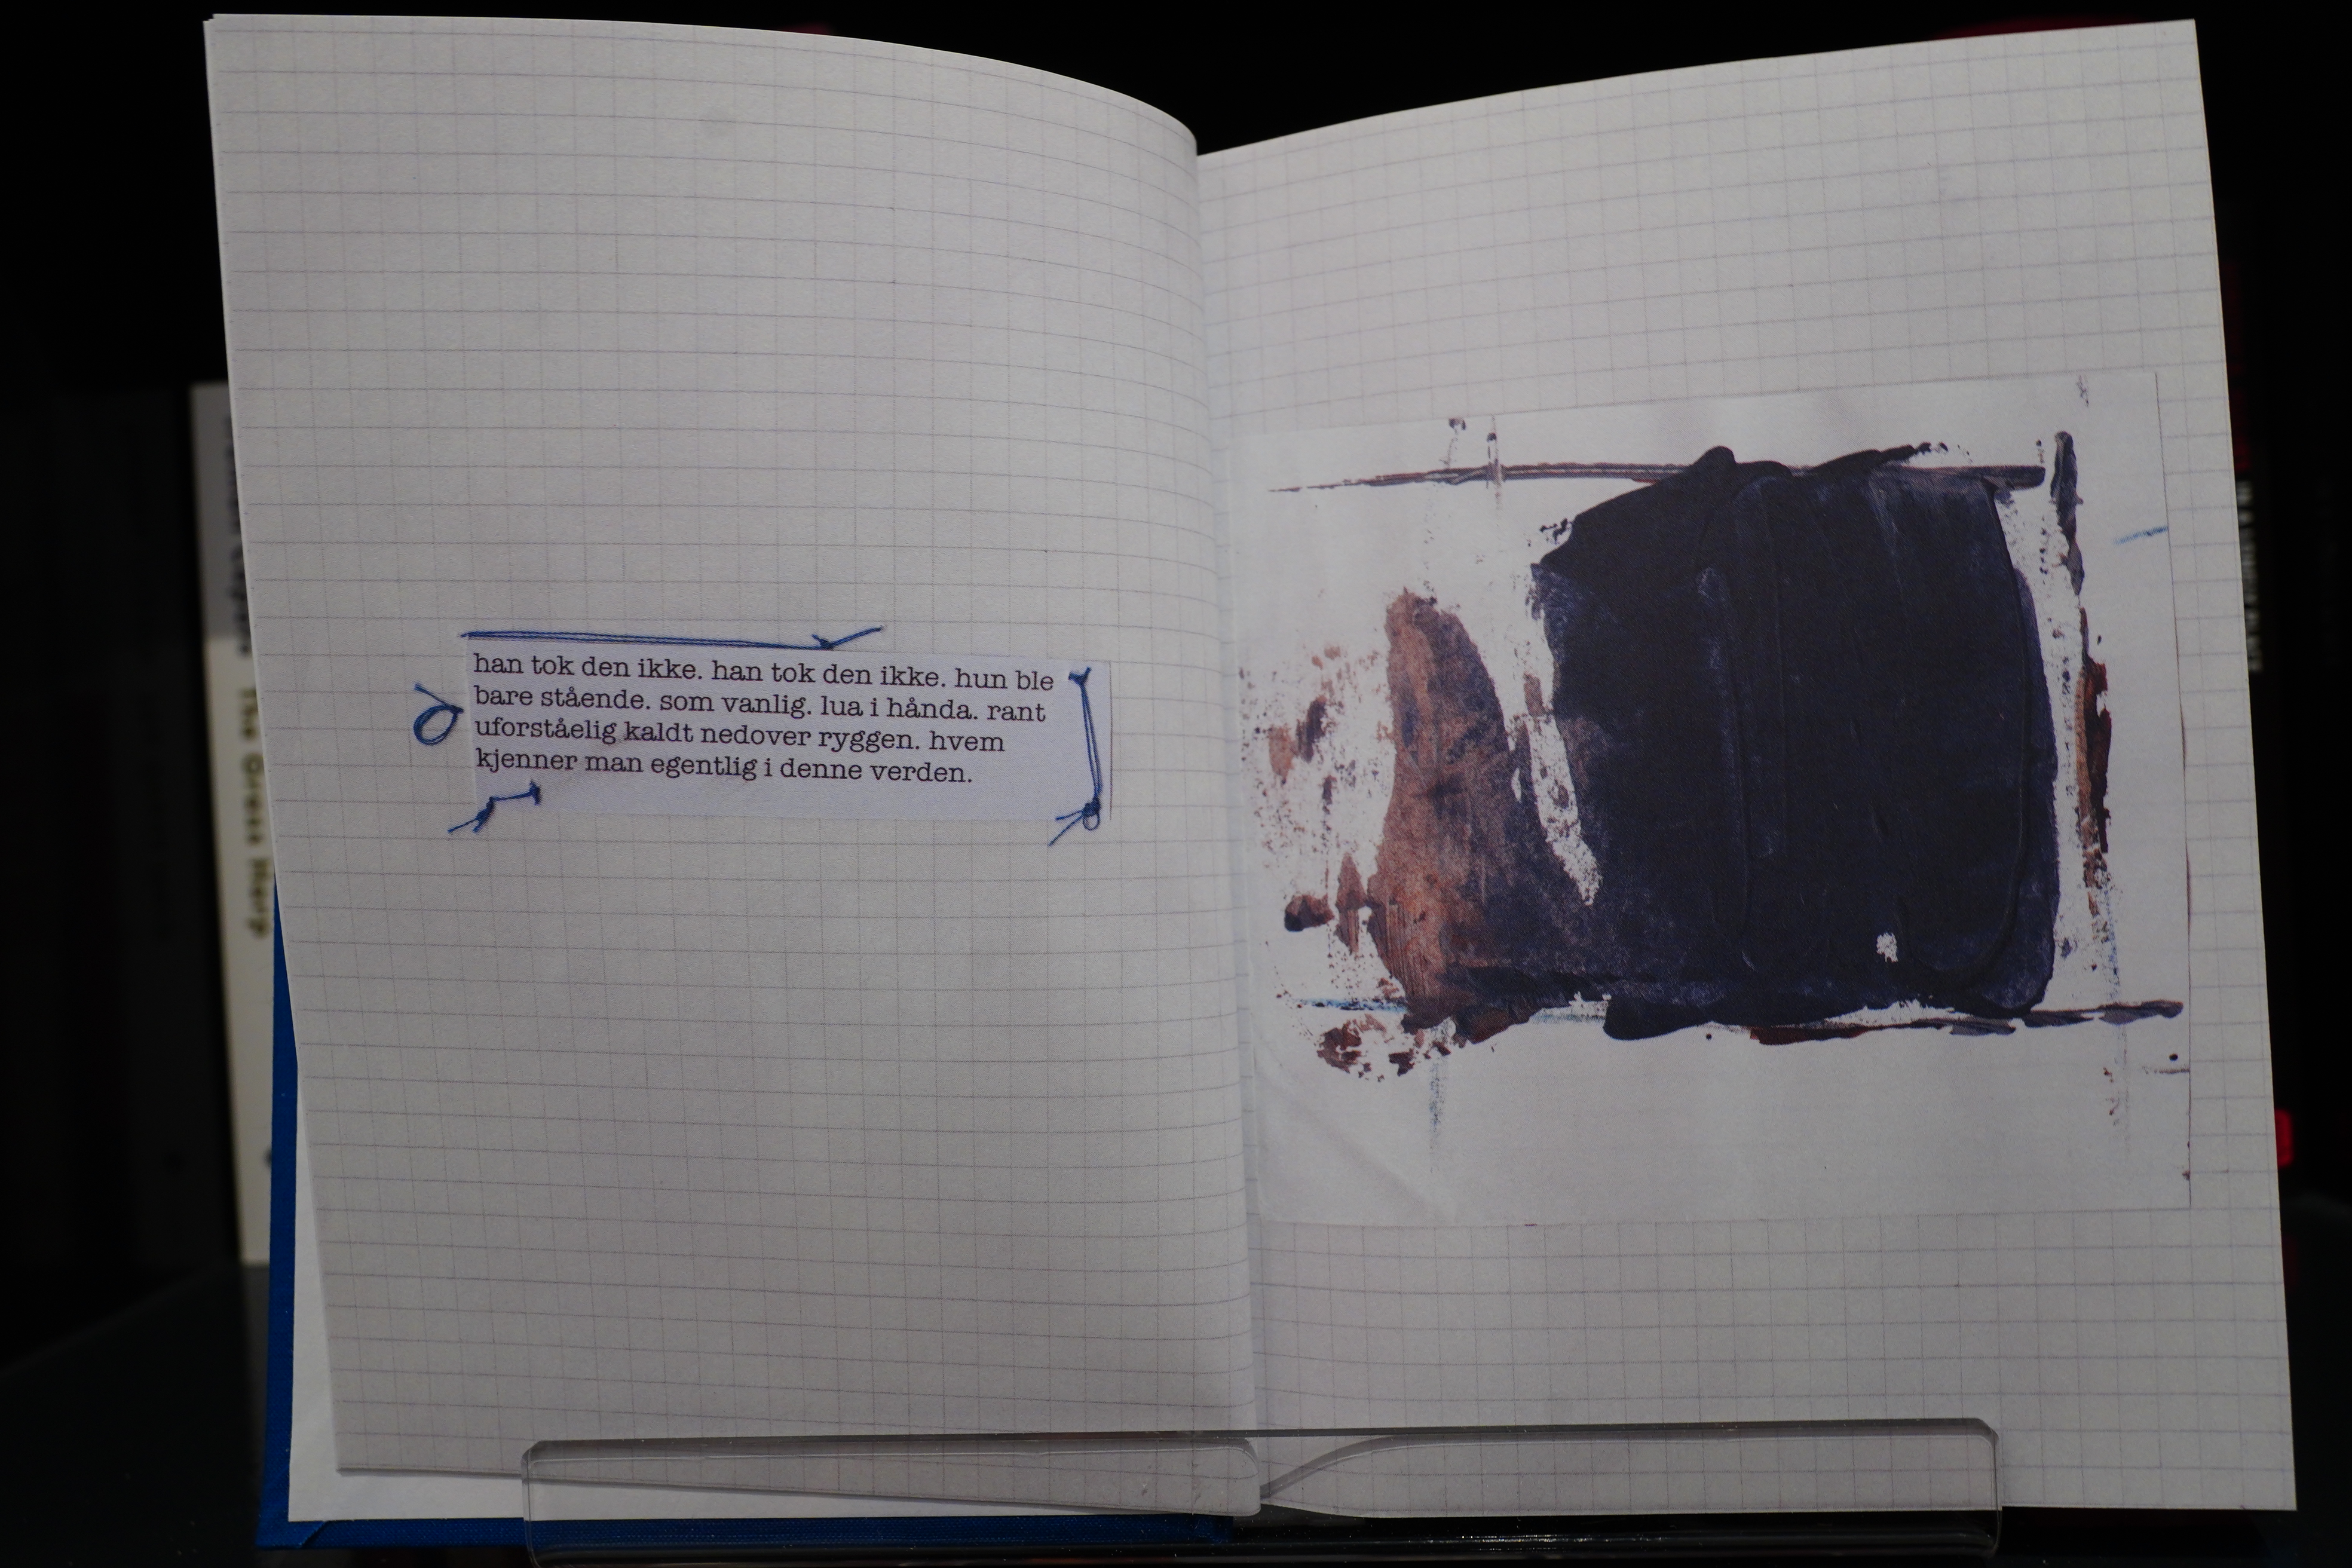 han tok den ikke. han tok den ikke. hun ble
bare stående. som vanlig. lua i hånda. rant
uforståelig kaldt nedover ryggen. hvem
kjenner man egentlig i denne verden.
The Grass Harp